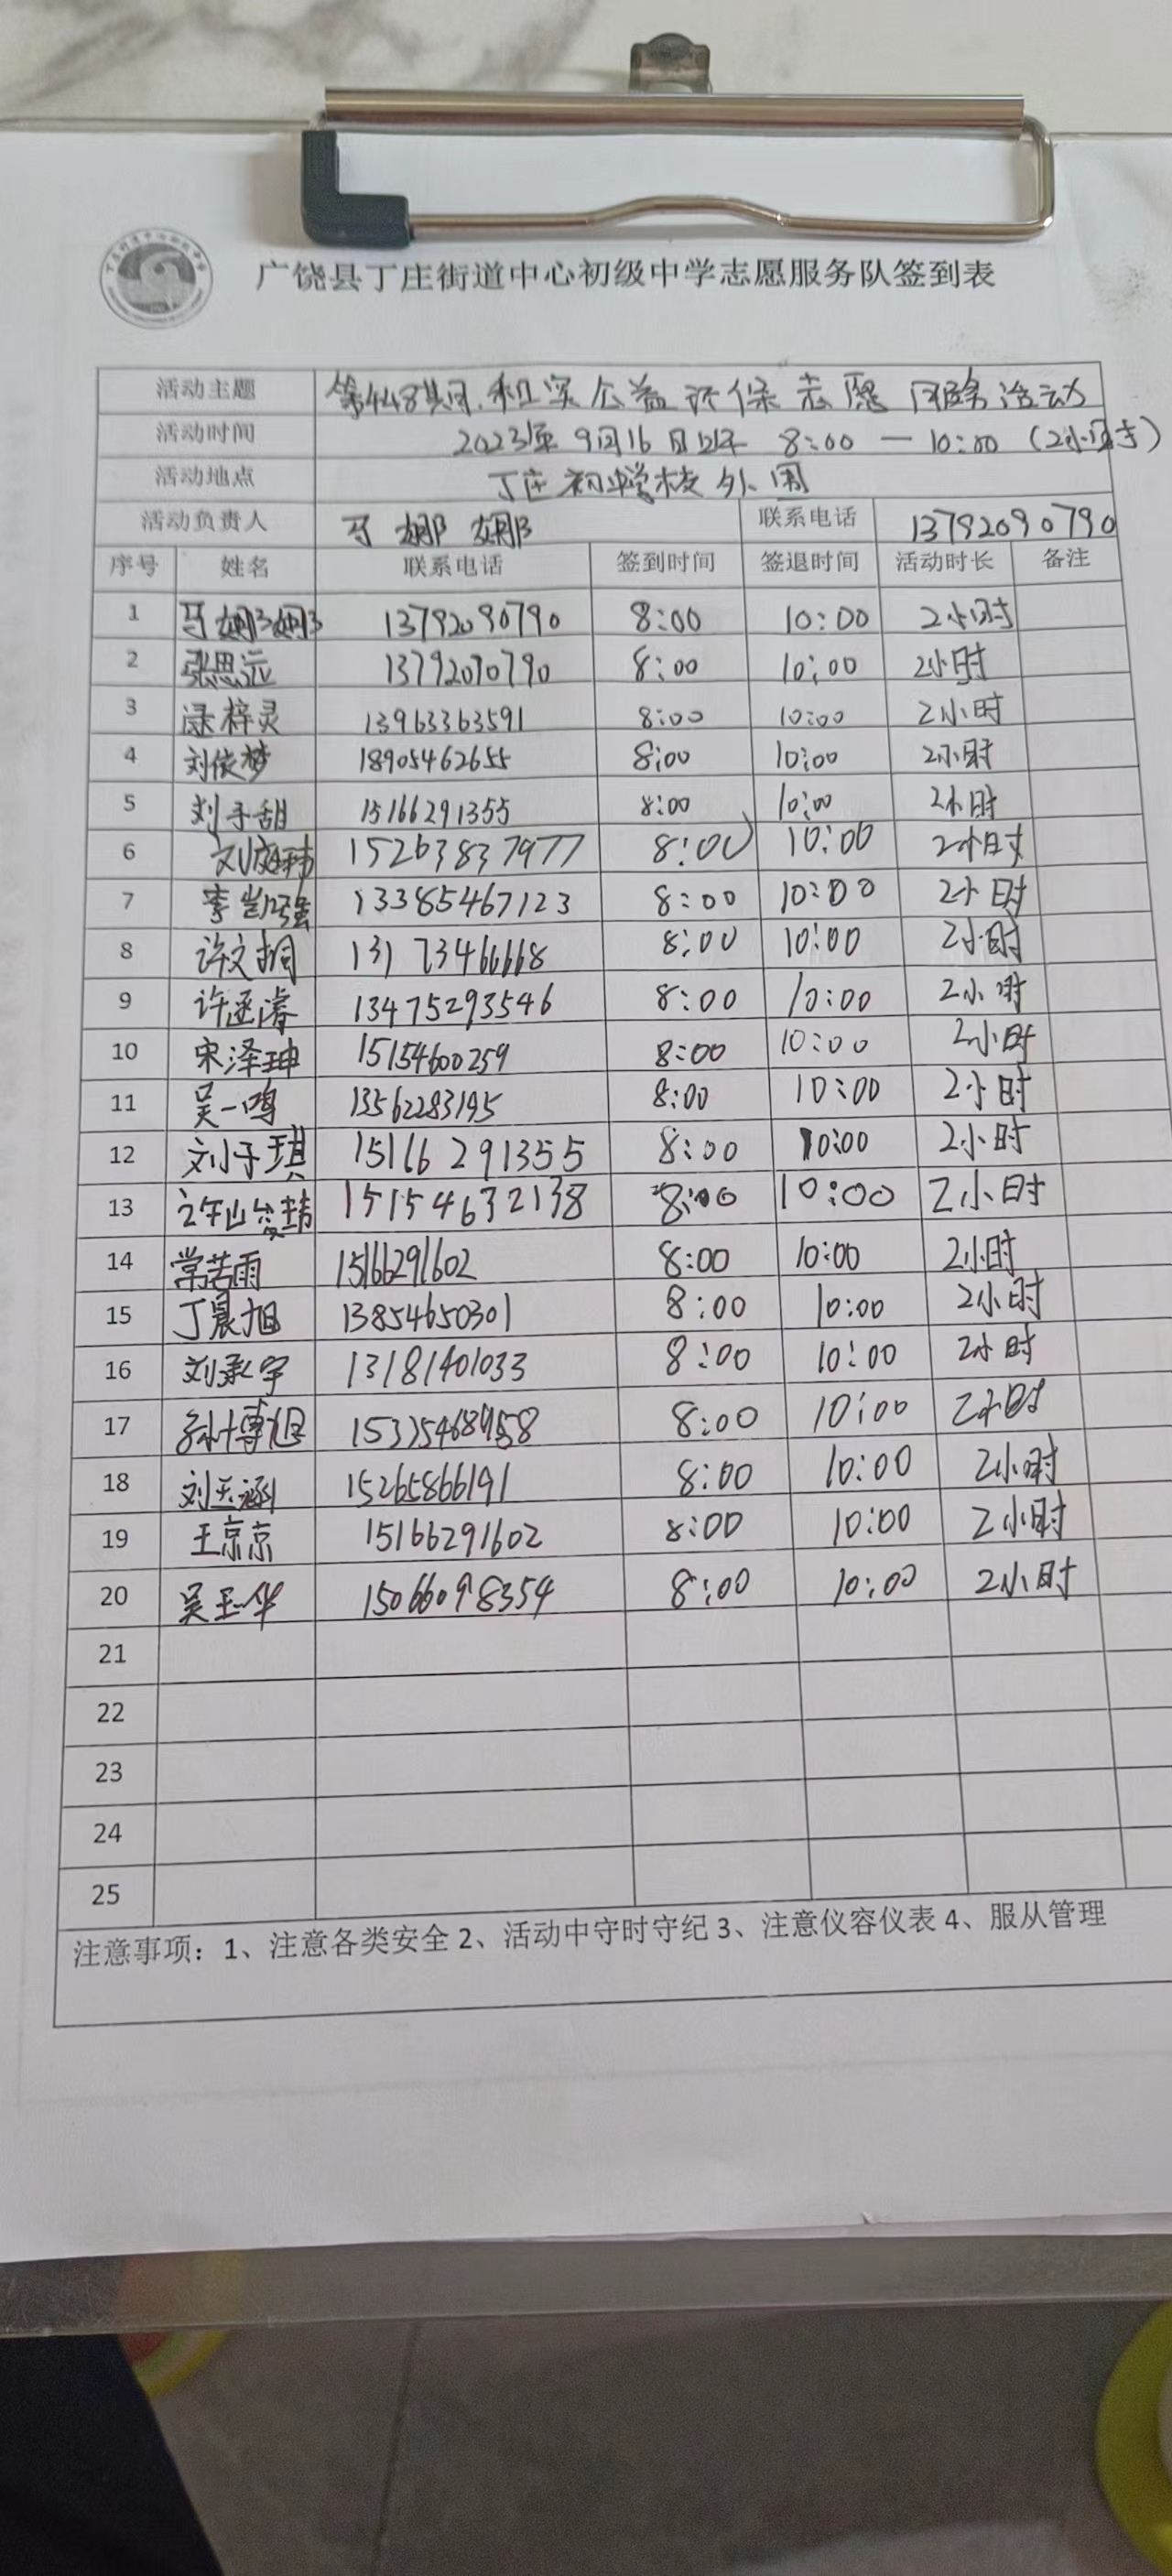 广饶县丁庄街道中心初级中学志愿服务队签到表
活动主题 第448期 和实公益环保志愿 活动
活动时间 2023年9月16日 8:00 — 10:00 (2小时)
活动地点 丁庄初中学校外围
活动负责人 马娜娜 联系电话 13792090790
序号 姓名 联系电话 签到时间 签退时间 活动时长 备注
1 马娜娜 13792090790 8:00 10:00 2小时
2 张思远 13792090790 8:00 10:00 2小时
3 梓灵 13963363591 8:00 10:00 2小时
4 刘俊梦 18905462655 8:00 10:00 2小时
5 刘子甜 15166291355 8:00 10:00 2小时
6 刘庭玮 15263837977 8:00 10:00 2小时
7 李凯强 13385467123 8:00 10:00 2小时
8 许文桐 13173466668 8:00 10:00 2小时
9 许涵濬 13475293546 8:00 10:00 2小时
10 宋泽珅 15154600259 8:00 10:00 2小时
11 吴一鸣 13562283195 8:00 10:00 2小时
12 刘子琪 15166291355 8:00 10:00 2小时
13 15154632138 8:00 10:00 2小时
14 常芸雨 15166291602 8:00 10:00 2小时
15 丁晨旭 13854650301 8:00 10:00 2小时
16 刘承宇 13181401033 8:00 10:00 2小时
17 孙博旭 8:00 10:00 2小时
18 刘玉涵 15265866191 8:00 10:00 2小时
19 王京京 15166291602 8:00 10:00 2小时
20 吴玉华 15066098354 8:00 10:00 2小时
21
22
23
24
25
注意事项：1、注意各类安全 2、活动中守时守纪 3、注意仪容仪表 4、服从管理